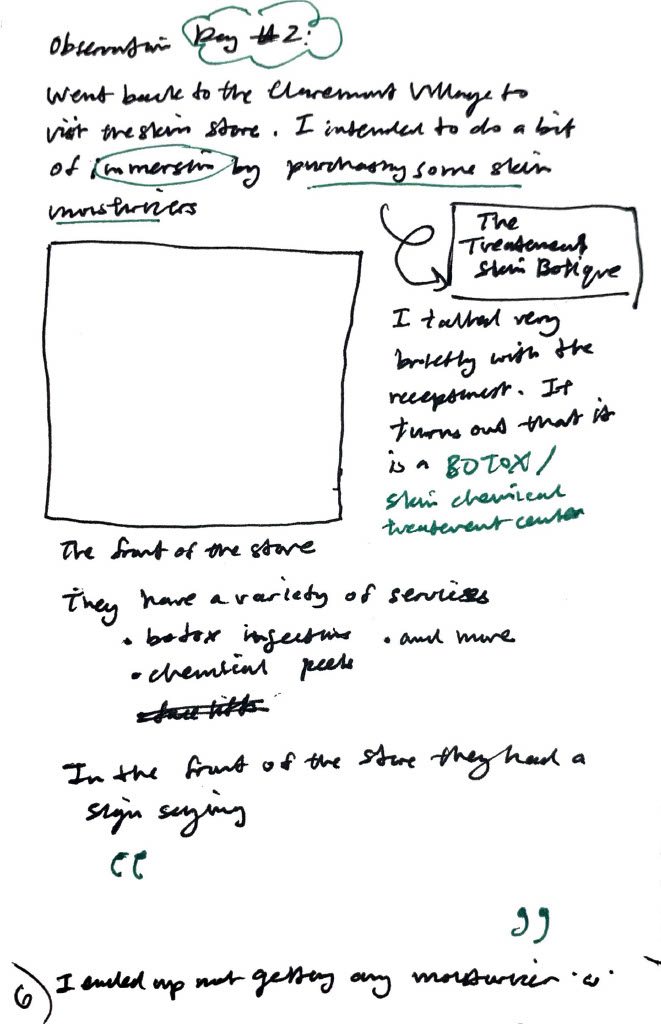 Observation Day #2:
Went back to the Claremont Village to
visit the skin store. I intended to do a bit
of immersion by purchasing some skin
moisturizers
The
Treatement
Skin Botique
I talked very
briefly with the
receptinist. It
turns out that is
is a BOTOX/
skin chemical
treatement center
The front of the store
They have a variety of services
• botox injections • and more
• chemical peels
face lifts
In the front of the store they had a
sign saying
“
”
6) I ended up not getting any moisturizer